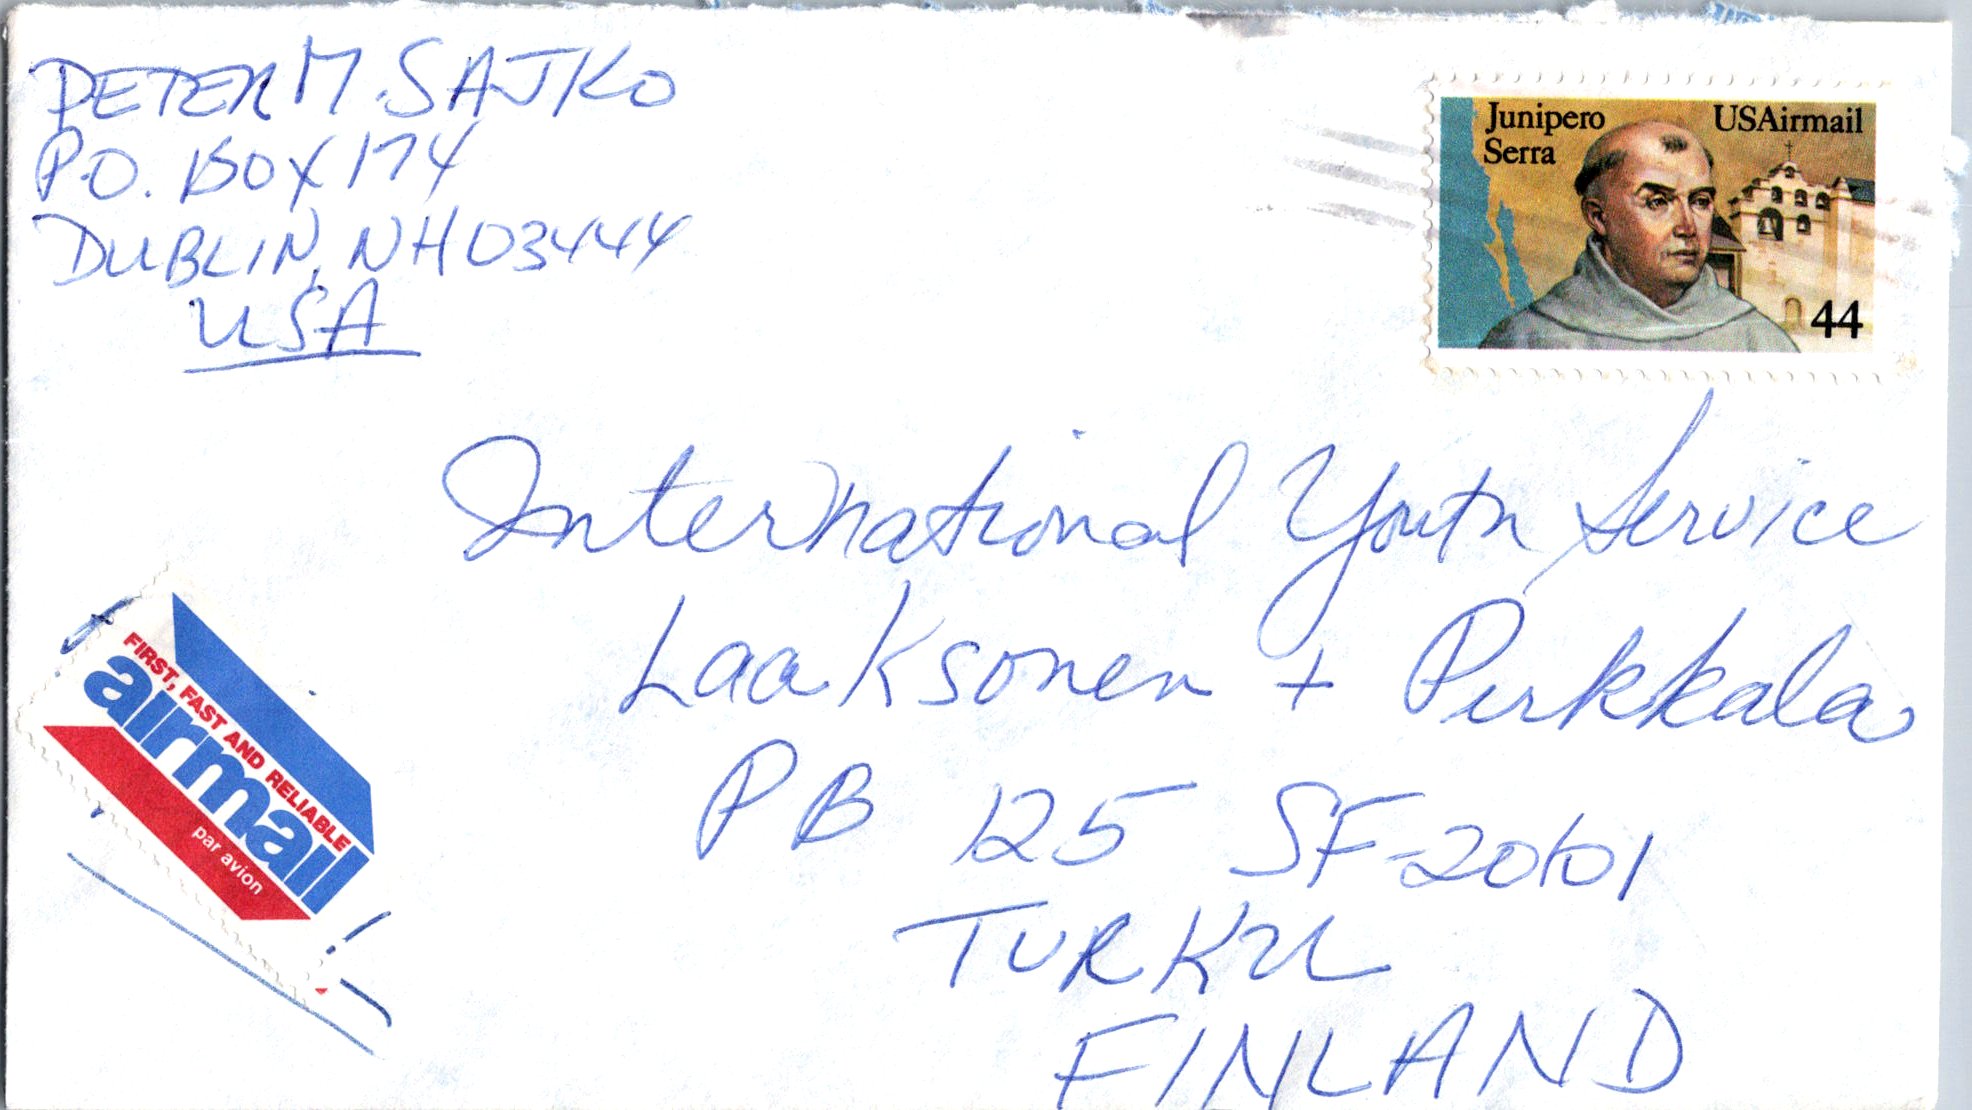 PETER M. SAJKO
P.O. BOX 174
DUBLIN, NH 03444
USA
Junipero
Serra
USAirmail
44
International Youth Service
Laaksonen + Pirkkala
PB 125 SF-20101
TURKU
FINLAND
FIRST, FAST AND RELIABLE
airmail
par avion